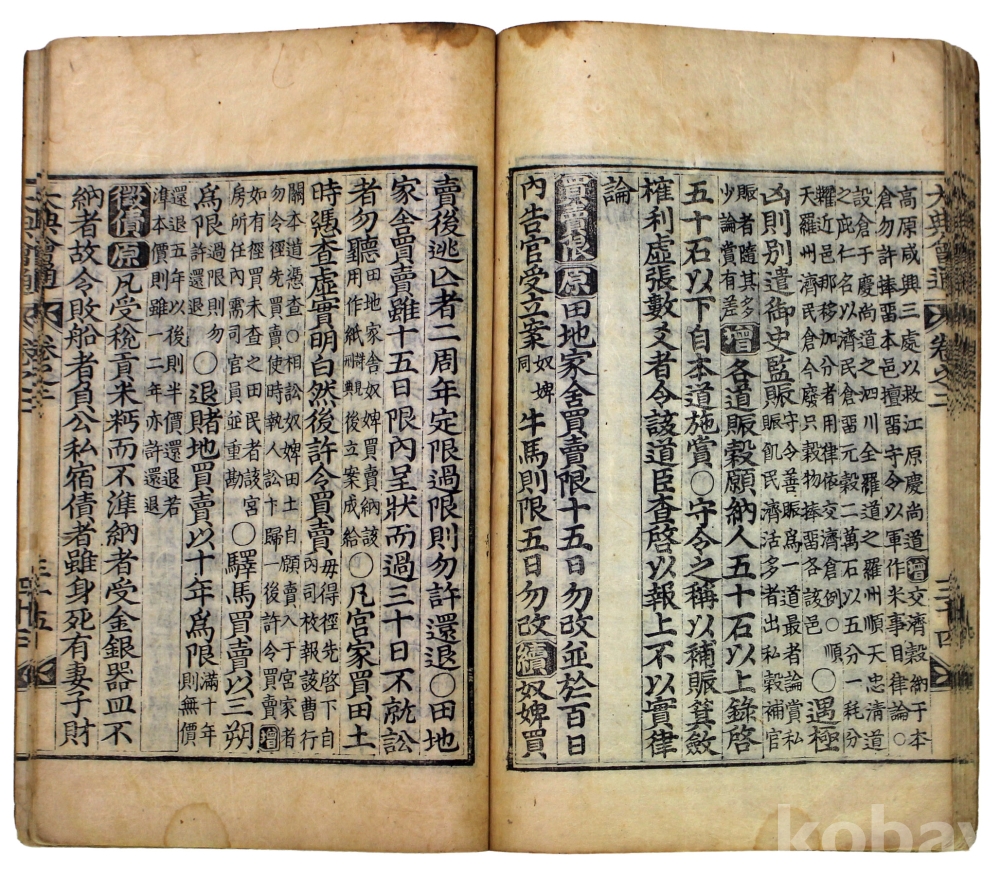 大典會通 卷之二 三十四
高原咸興三處以救江原慶尚道增交濟穀納于本
倉勿許捧留本邑擅留守令以軍作米事目律論○
設倉于慶尚道之泗川全羅道之羅州順天忠淸道
之庇仁名以濟民倉留元穀二萬石以五分一耗分
糶近邑那移加分者用律依交濟倉例○順
天羅州濟民倉今廢只穀物捧留各該邑
○遇極
凶則別遣御史監賑
守令善賑爲一道最者論賞私
賑飢民濟活多者出私穀補官
賑者隨其多
少論賞有差
增各道賑穀願納人五十石以上錄啓
五十石以下自本道施賞○守令之稱以補賑箕斂
榷利虛張數爻者令該道臣查啓以報上不以實律
論
買賣限 原 田地家舍買賣限十五日勿改並於百日
內告官受立案奴婢同牛馬則限五日勿改續奴婢買
賣後逃亡者二周年定限過限則勿許還退○田地
家舍買賣雖十五日限內呈狀而過三十日不就訟
者勿聽
田地家舍奴婢買賣納該
用作紙見刑典後立案成給
○凡宮家買田土
時憑查虛實明白然後許令買賣
毋得徑先啓下自
內司枚報該曹行
關本道憑查○相訟奴婢田土自願賣入于宮家者
勿令徑先買賣使時執人訟卞歸一後許令買賣增
如有徑買未查之田民者該宮
房所任內需司官員並重勘
○驛馬買賣以三朔
爲限過限則勿許還退○退賭地買賣以十年爲限滿十年則無價
還退五年以後則半價還退若
準本價則雖一二年亦許還退
徵債 原 凡受稅貢米而不準納者受金銀器皿不
納者故令敗船者負公私宿債者雖身死有妻子財
大典會通 卷之二 三十五
kobay